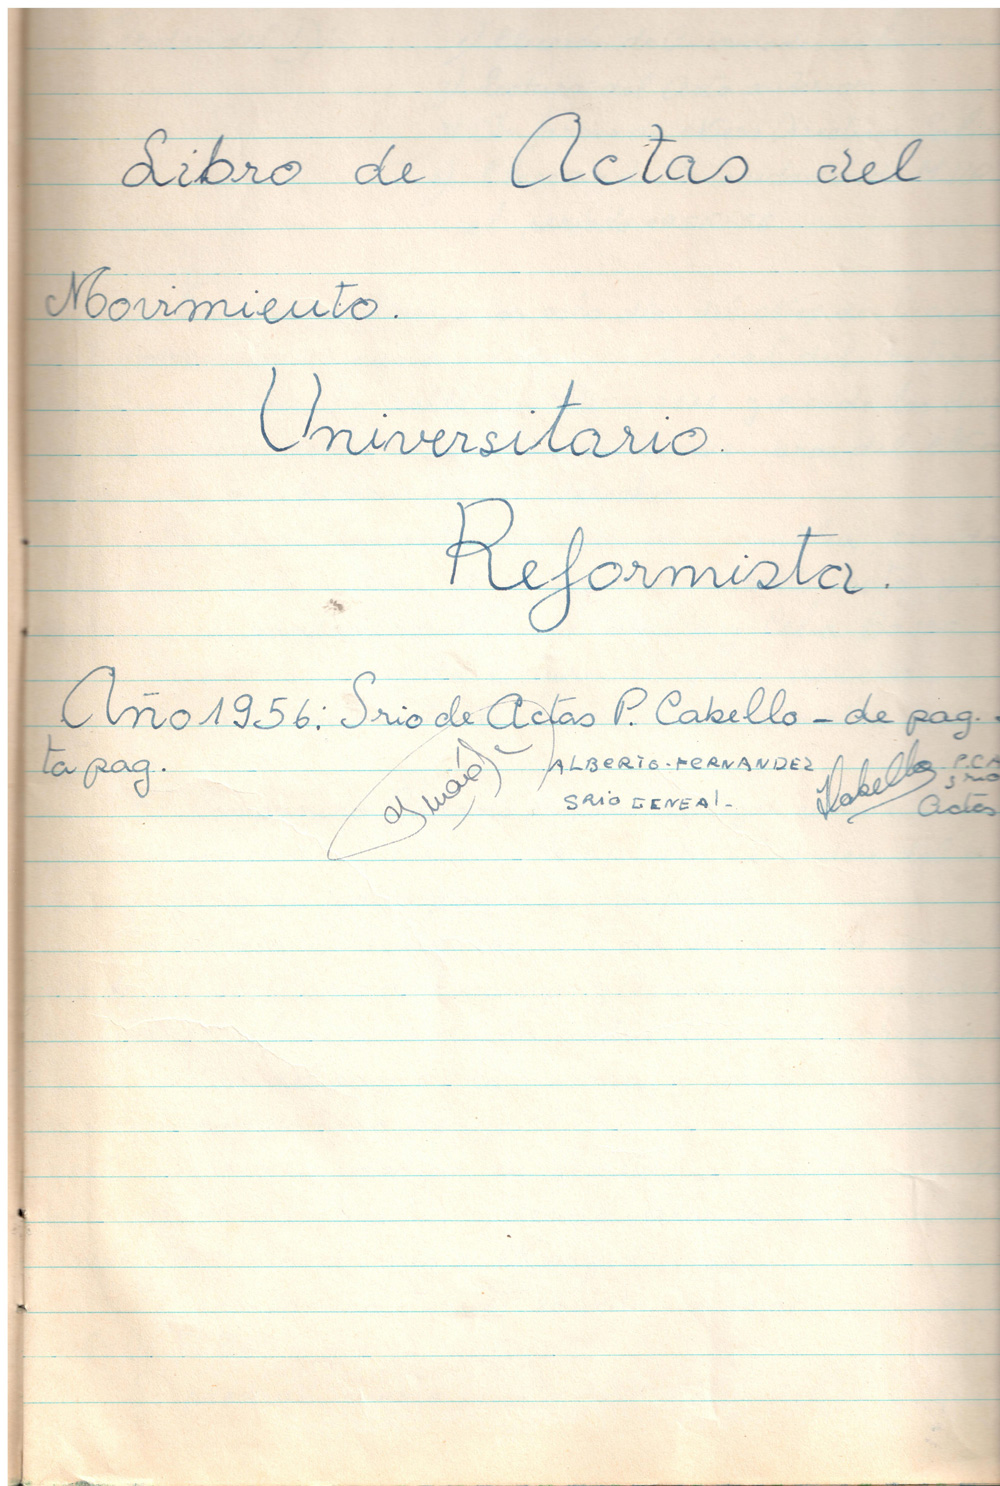 Libro de Actas del
Movimiento.
Universitario.
Reformista.
Año 1956: Srio de Actas P. Cabello - de pag.
ta pag.
ALBERTO. FERNANDEZ
SRIO GENEAL-
PCabello
P.CA
Srio
Actas